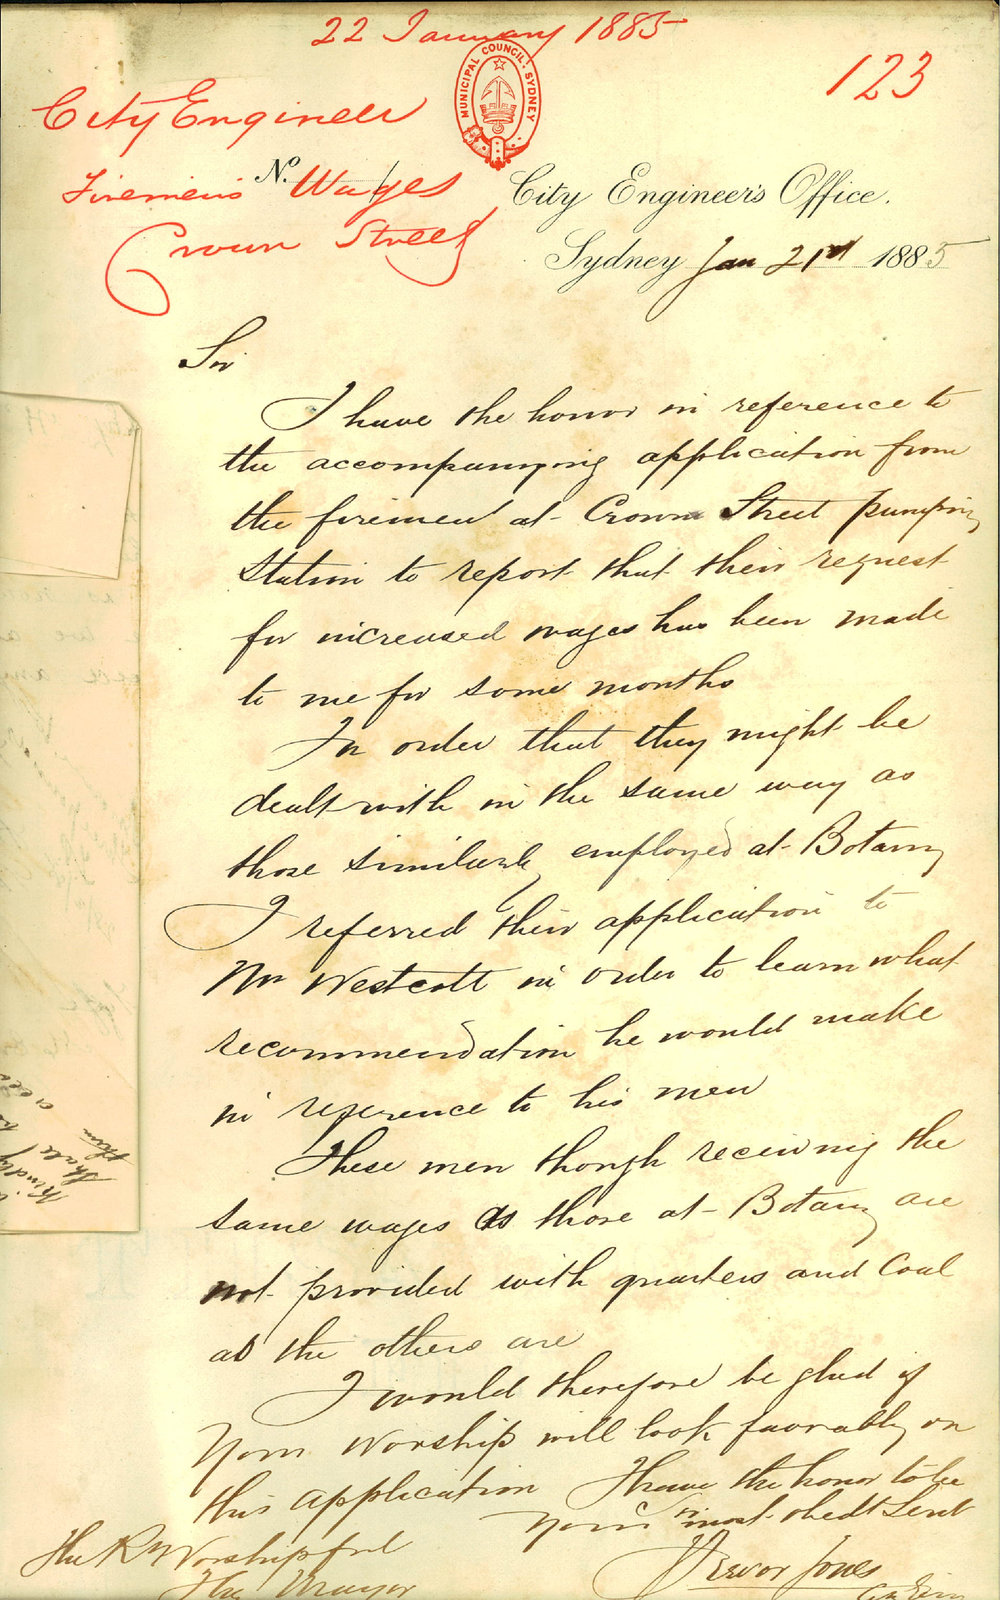 22 January 1885
123
MUNICIPAL COUNCIL. SYDNEY
City Engineer
Firemen's Wages
Crown Street
No.
City Engineer's Office.
Sydney Jan 21st 1885
Sir
I have the honor in reference to
the accompanying application from
the firemen at Crown Street pumping
Station to report that their request
for increased wages has been made
to me for some months
In order that they might be
dealt with in the same way as
those similarly employed at Botany
I referred their application to
Mr Westcott in order to learn what
recommendation he would make
in reference to his men
These men though receiving the
same wages as those at Botany are
not provided with quarters and Coal
as the others are
I would therefore be glad if
Your Worship will look favorably on
this application I have the honor to be
Your most obedt Servt
Trevor Jones
The Rt Worshipful
The Mayor
kindly
shall
them